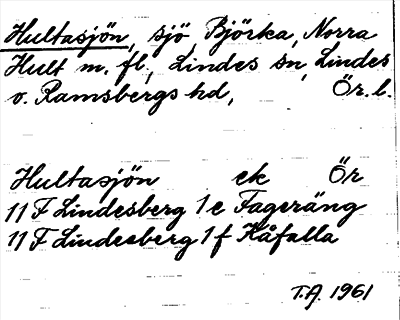 Hultasjön, sjö, Björka, Norra
Hult m. fl., Lindes sn, Lindes
o. Ramsbergs hd, Ör. l.
Hultasjön ek Ör
11 F Lindesberg 1 e Fageräng
11 F Lindesberg 1 f Kåfalla
T.A. 1961